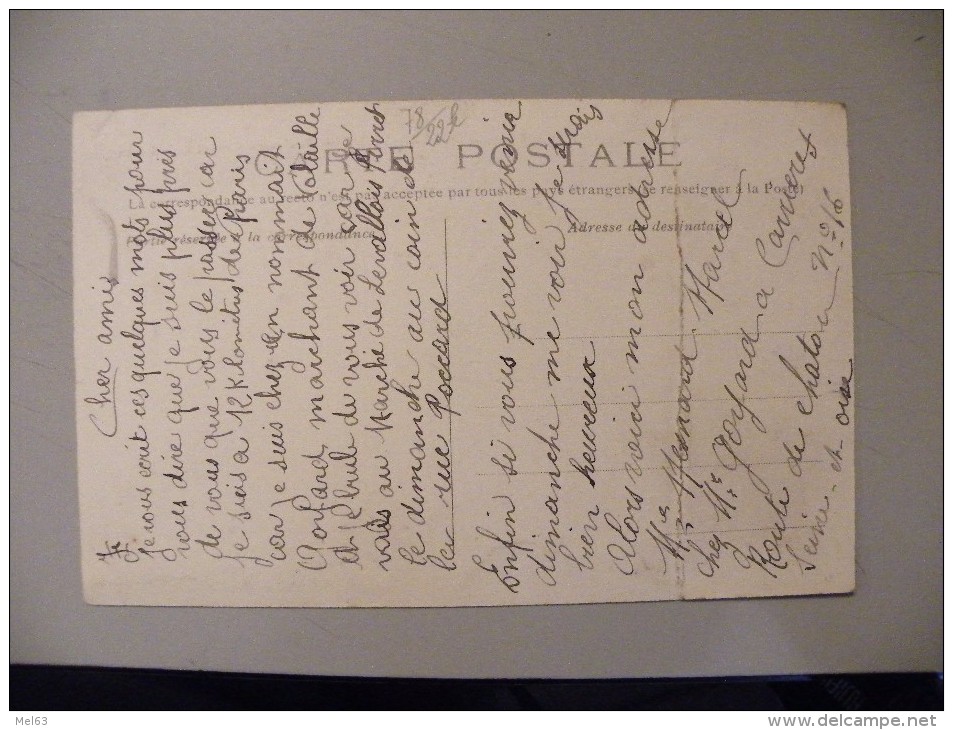 Cher amis
Je vous écrit ces quelques mots pour
vous dire que je suis plus près
de vous que vous le panser car
je suis a 12 Khomitres de Paris
car je suis chez un nommait
Goyard marchant de
et brul de vous voir car je
vais au Marché de Levallois Perret
le dimanche au coin de
la rue Poccard
Enfin si vous pouviez venir
dimanche me voir je serais
bien heureux
Alors voici mon adresse
Menard Marcel
chez Mr Goyard a Carrieres
Route de chatou No 10
Seine et oise
78
22k
CARTE POSTALE
La correspondance au recto n'est pas acceptée par tous les pays étrangers (Se renseigner à la Poste)
Partie réservée à la correspondance
Adresse du destinataire
Mel63
delcampe.net